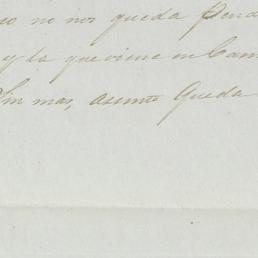 no nos queda
y la que viene en Cam
Sin mas, asunto Queda